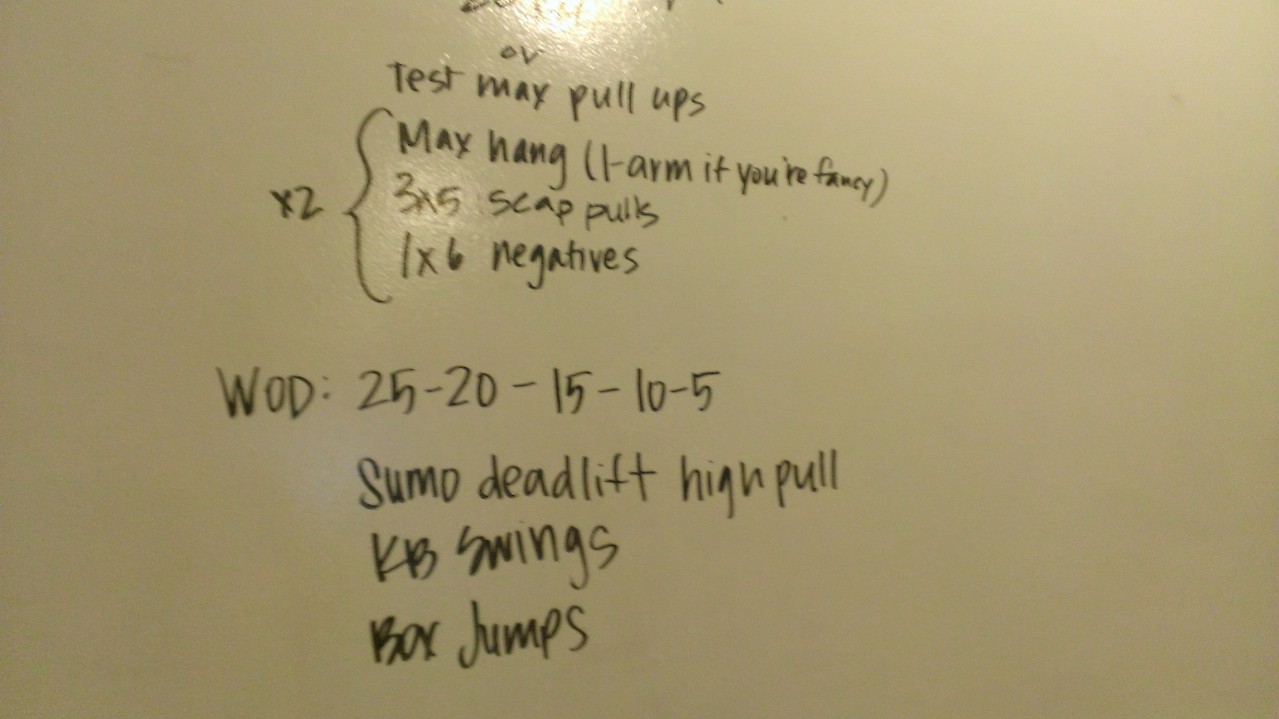 or
Test max pull ups
Max hang (1-arm if you're fancy)
x2
3x5 scap pulls
1x6 negatives
WOD: 25-20-15-10-5
Sumo deadlift high pull
KB Swings
Box Jumps